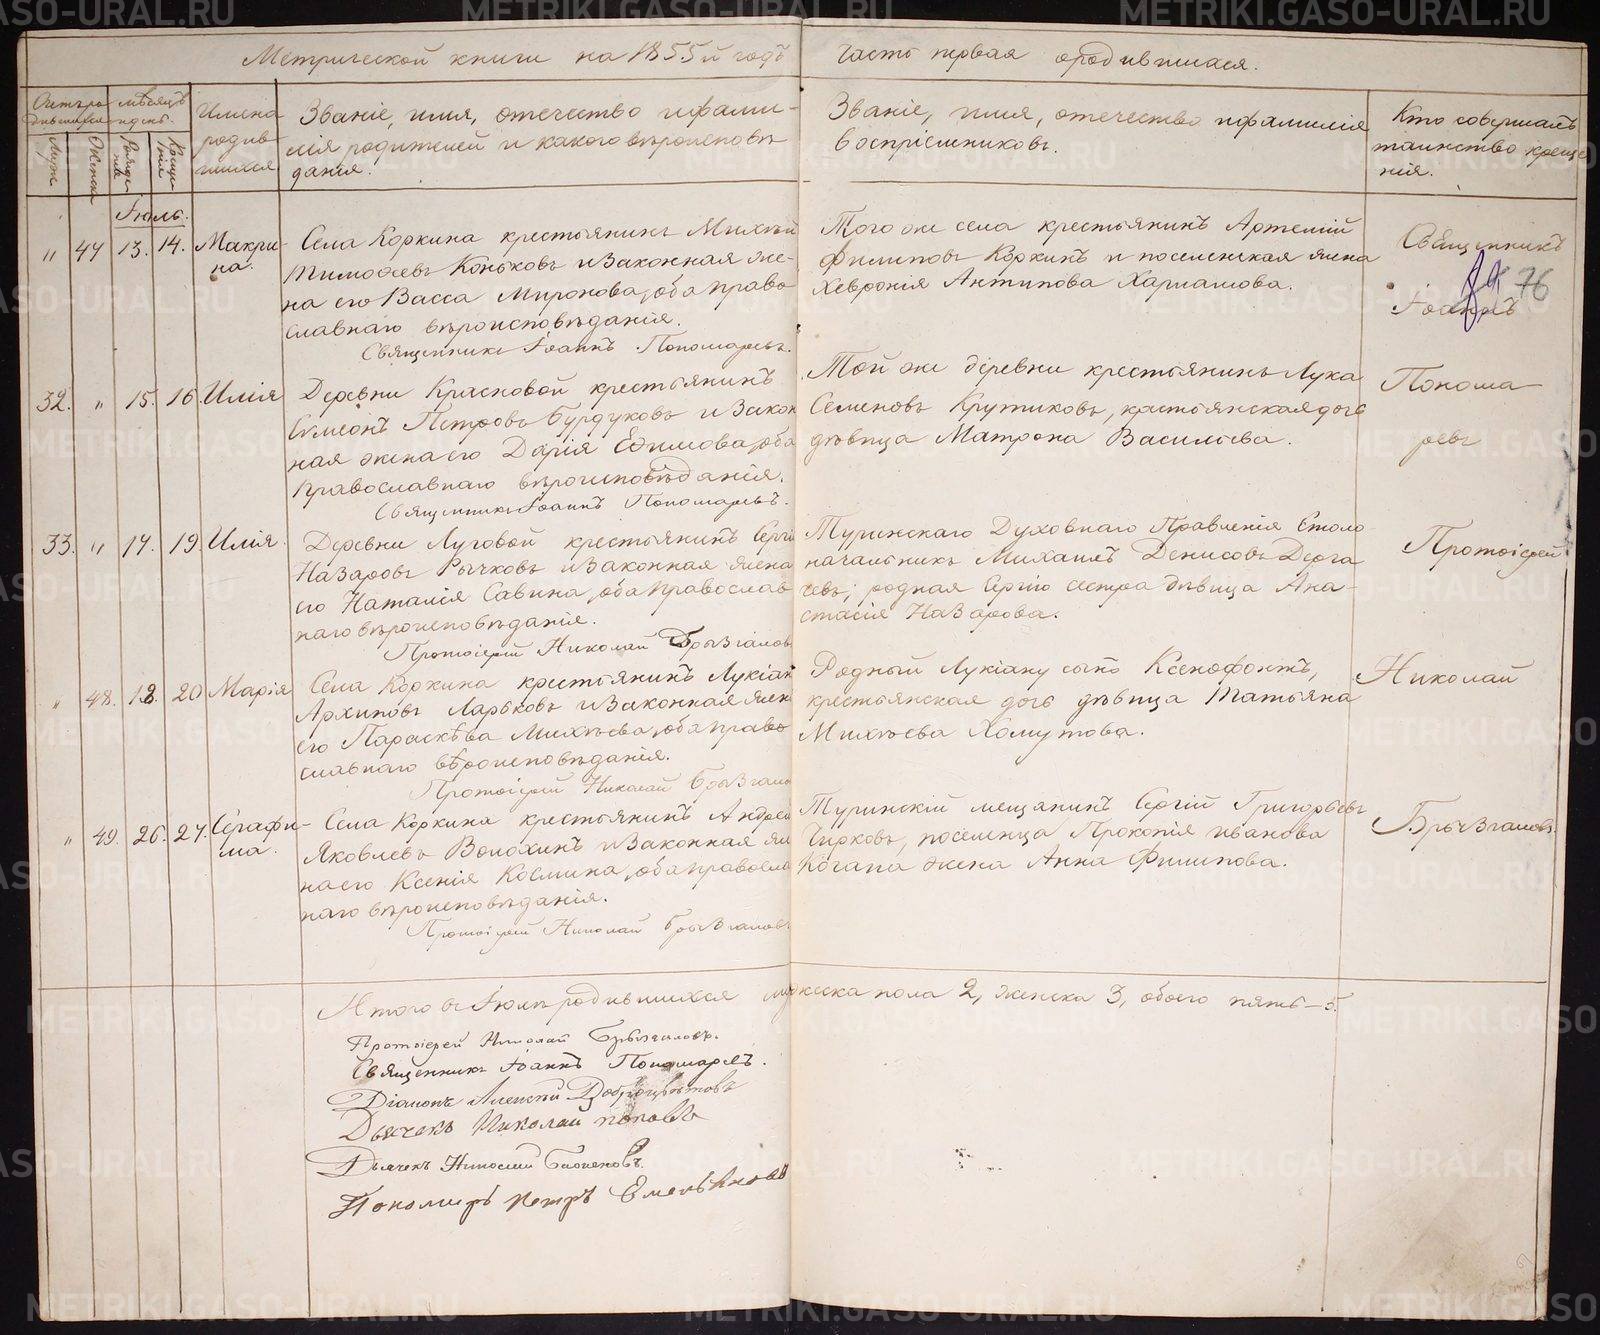 Метрической книги на 1855й годъ часть первая о родившихся.
Счетъ родившихся
Мѣсяцъ и день.
Имена родившихся
Званіе, имя, отечество и фами-
лія родителей и какого вѣроисповѣ-
данія.
Званіе, имя, отечество и фамилія
воспріемниковъ.
Кто совершалъ
таинство креще-
нія.
Муж.
Женск.
Рожде-
нія
Креще-
нія
Іюль.
" 47 13. 14. Макри-
на.
Села Коркина крестьянинъ Михѣй
Тимоѳеевъ Коньковъ и законная же-
на его Васса Миронова, оба право
славнаго вѣроисповѣданія.
Священникъ Іоаннъ Пономаревъ.
Того же села крестьянинъ Артемій
Филиповъ Коркинъ и поселенская жена
Хевронія Антипова
Священникъ
76
Іоаннъ
32. " 15. 16. Илія
Деревни Красновой крестьянинъ
Сѵмеонъ Петровъ Бурдуковъ и закон
ная жена его Дарія Ефимова, оба
православнаго вѣроисповѣданія.
Священникъ Іоаннъ Пономаревъ.
Той же деревни крестьянинъ Лука
Семеновъ Крутиковъ, крестьянская дочь
дѣвица Матрона Васильева.
Понома-
ревъ
33. " 17. 19. Илія.
Деревни Луговой крестьянинъ Сергій
Назаровъ Рычковъ и законная жена
его Наталія Савина, оба православ
наго вѣроисповѣданія.
Протоіерей Николай Брызгаловъ
Туринскаго Духовнаго Правленія Столо
начальникъ Михаилъ Денисовъ Дерга
чевъ; родная Сергію сестра дѣвица Ана-
стасія Назарова.
Протоіерей
" 48. 18. 20 Марія
Села Коркина крестьянинъ Лукіан
Архиповъ Ларьковъ и законная жен
его Параскѣва Михѣева, оба право
славнаго вѣроисповѣданія.
Протоіерей Николай Брызгало
Родный Лукіану сынъ Ксенофонтъ,
крестьянская дочь дѣвица Татьяна
Михѣева Хомутова.
Николай
" 49. 26. 27. Серафи-
ма.
Села Коркина крестьянинъ Андрей
Яковлевъ Волохинъ и законная же
на его Ксенія Космина, оба правосла
наго вѣроисповѣданія.
Протоіерей Николай Брызгаловъ.
Туринскій мещанинъ Сергій Григорьевъ
Чирковъ, поселенца Прокопія Иванова
жена Анна Филипова.
Брызгаловъ.
Итого въ Іюлѣ родившихся мужеска пола 2, женска 3, обоего пять - 5.
Протоіерей Николай Брызгаловъ.
Священникъ Іоаннъ Пономаревъ.
Діаконъ Алексій Доброцвѣтовъ
Дьячекъ Николай Поповъ
Дьячекъ Николай
Пономарь Петръ Емельяновъ